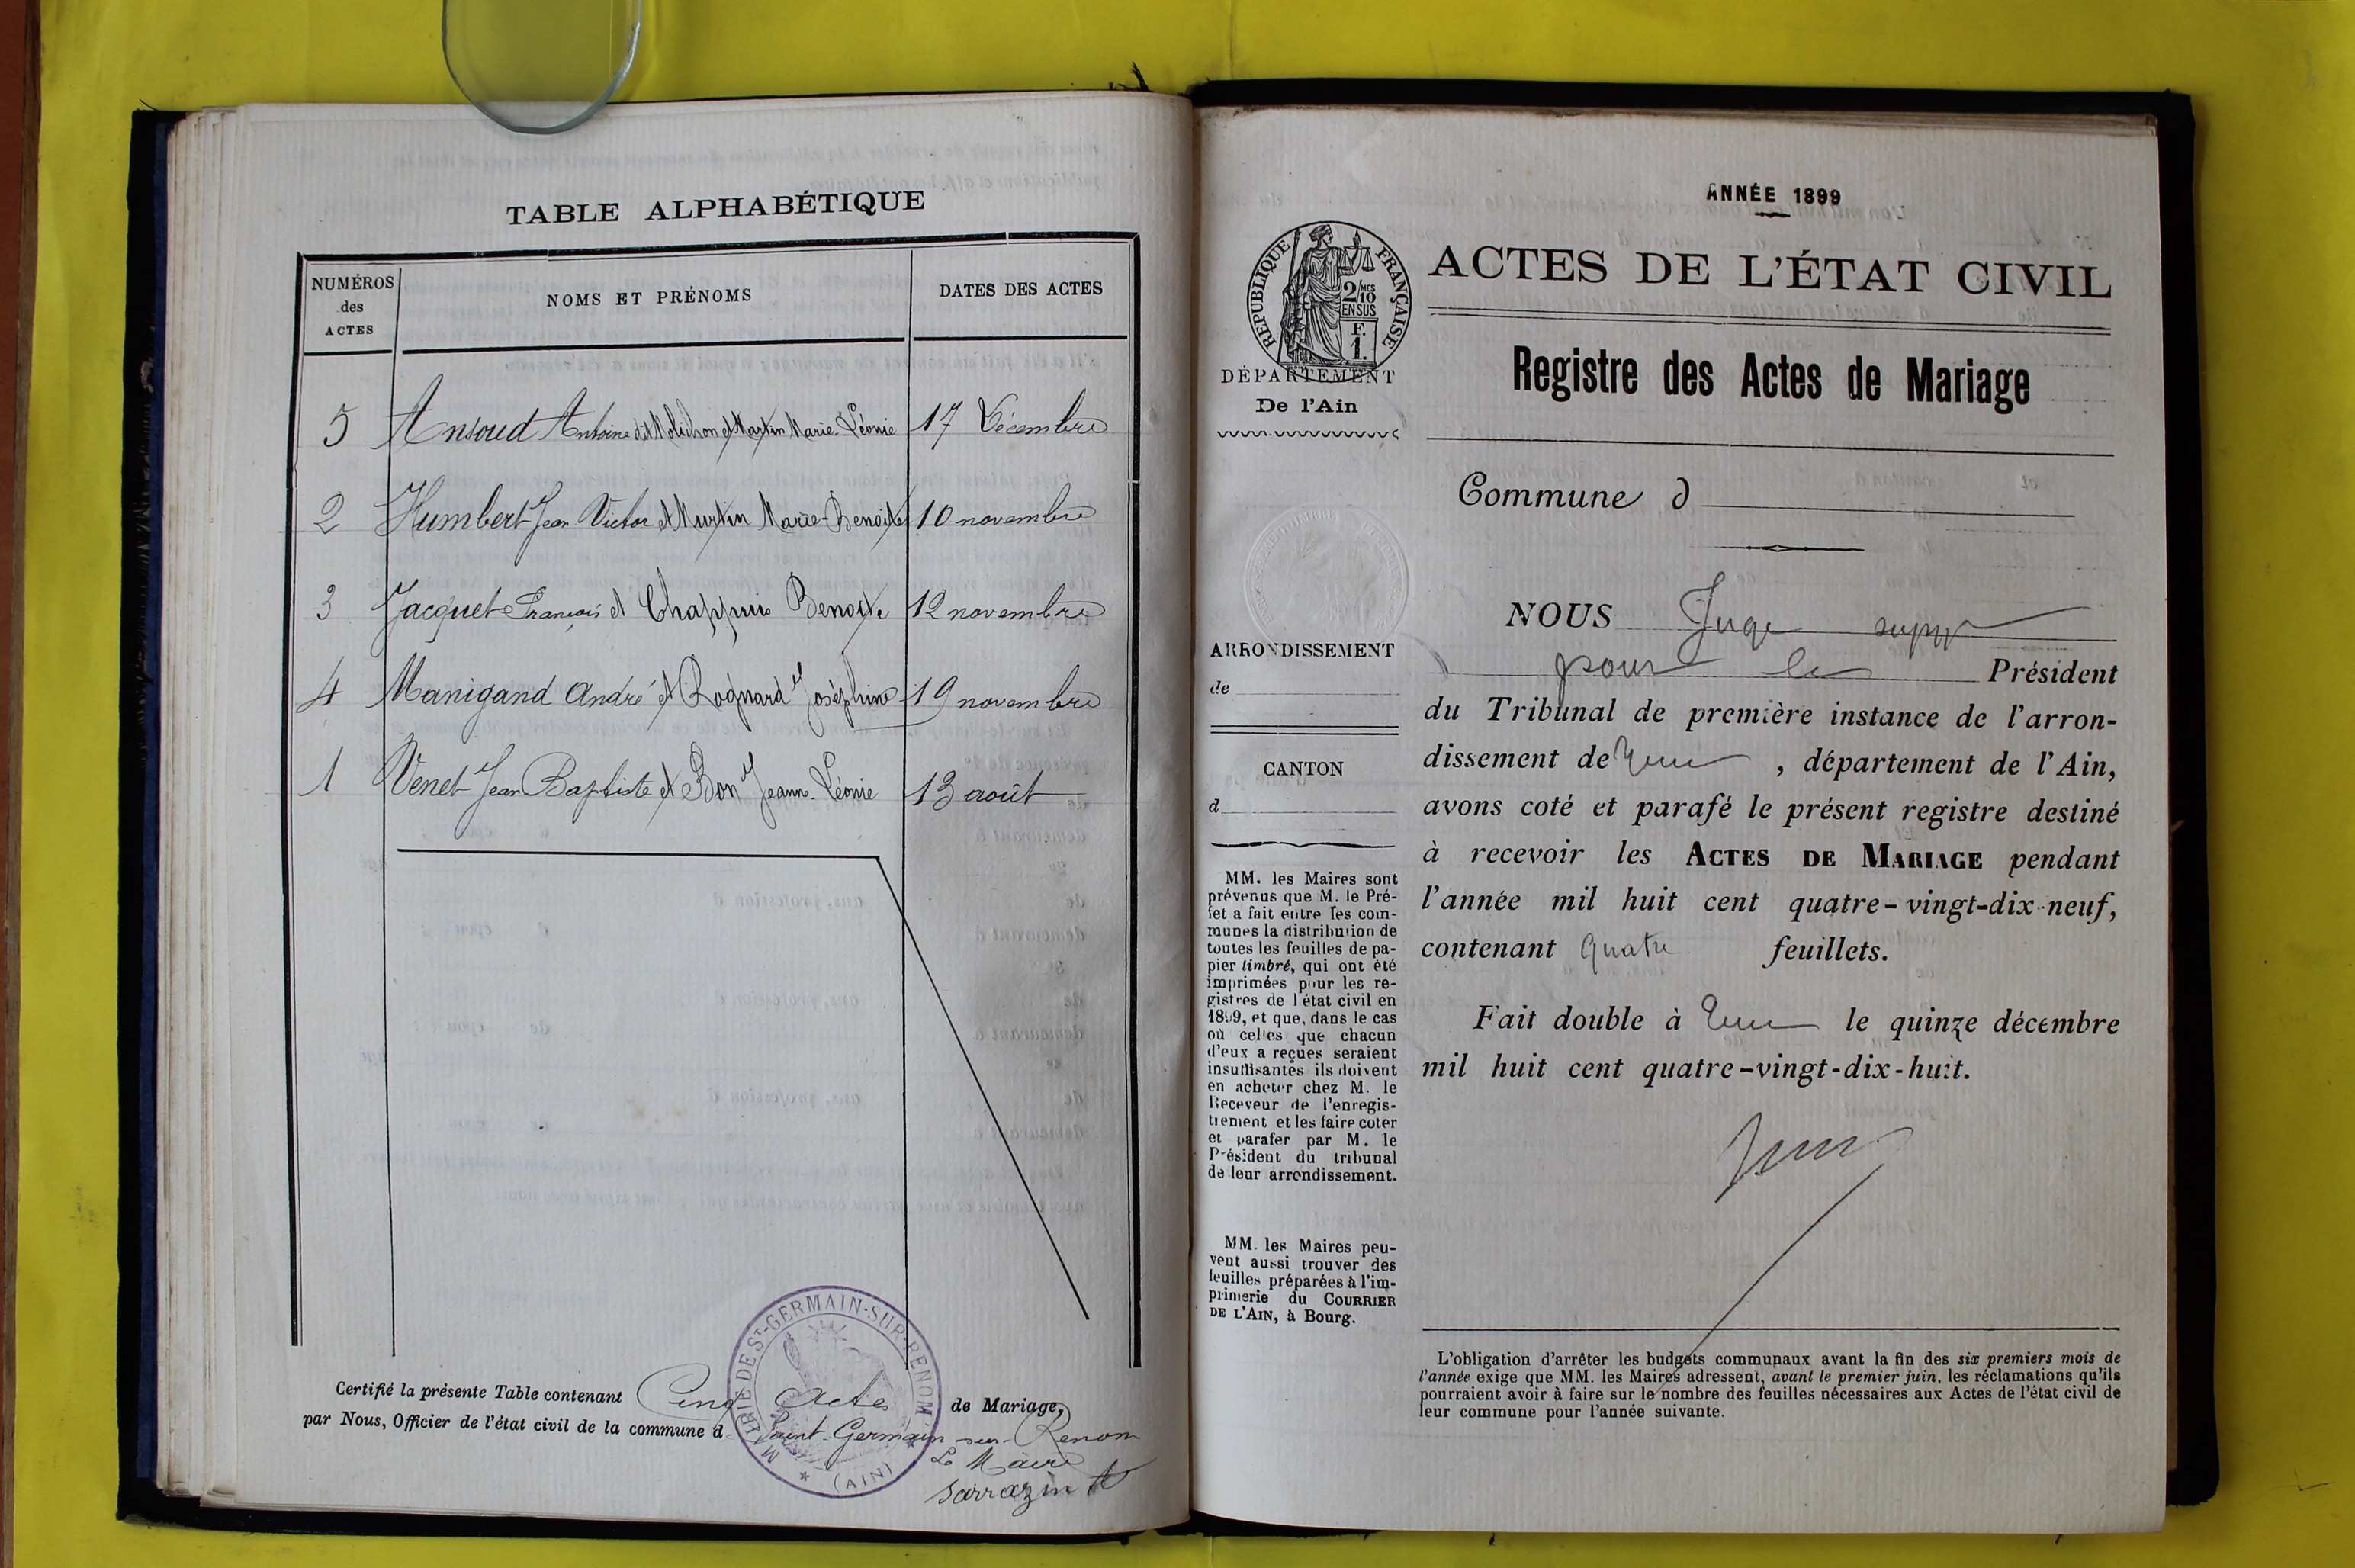 TABLE ALPHABÉTIQUE
NUMÉROS
des
ACTES
NOMS ET PRÉNOMS
DATES DES ACTES
5 Ansoud Antoine dit Molichon et Martin Marie-Léonie 17 Décembre
2 Humbert Jean Victor et Martin Marie-Benoite 10 novembre
3 Jacquet François et Chappuis Benoite 12 novembre
4 Manigand André et Rognard Joséphine 19 novembre
1 Venet Jean Baptiste et Bon Jeanne-Léonie 13 août
Certifié la présente Table contenant Cinq Actes de Mariage,
par Nous, Officier de l'état civil de la commune d Saint-Germain-sur-Renom
Le Maire
Sarrazin
MAIRIE DE ST-GERMAIN-SUR-RENOM
(AIN)
ANNÉE 1899
RÉPUBLIQUE FRANÇAISE
2/10 MES
EN SUS
F.
1.
DÉPARTEMENT
De l'Ain
ARRONDISSEMENT
de
CANTON
d
MM. les Maires sont
prévenus que M. le Pré-
fet a fait entre les com-
munes la distribution de
toutes les feuilles de pa-
pier timbré, qui ont été
imprimées pour les re-
gistres de l'état civil en
1899, et que, dans le cas
où celles que chacun
d'eux a reçues seraient
insuffisantes ils doivent
en acheter chez M. le
Receveur de l'enregis-
trement et les faire coter
et parafer par M. le
Président du tribunal
de leur arrondissement.
MM. les Maires peu-
vent aussi trouver des
feuilles préparées à l'im-
primerie du COURRIER
DE L'AIN, à Bourg.
ACTES DE L'ÉTAT CIVIL
Registre des Actes de Mariage
Commune d
NOUS Juge supp
pour le Président
du Tribunal de première instance de l'arron-
dissement de , département de l'Ain,
avons coté et parafé le présent registre destiné
à recevoir les ACTES DE MARIAGE pendant
l'année mil huit cent quatre-vingt-dix-neuf,
contenant quatre feuillets.
Fait double à le quinze décembre
mil huit cent quatre-vingt-dix-huit.
L'obligation d'arrêter les budgets communaux avant la fin des six premiers mois de
l'année exige que MM. les Maires adressent, avant le premier juin, les réclamations qu'ils
pourraient avoir à faire sur le nombre des feuilles nécessaires aux Actes de l'état civil de
leur commune pour l'année suivante.